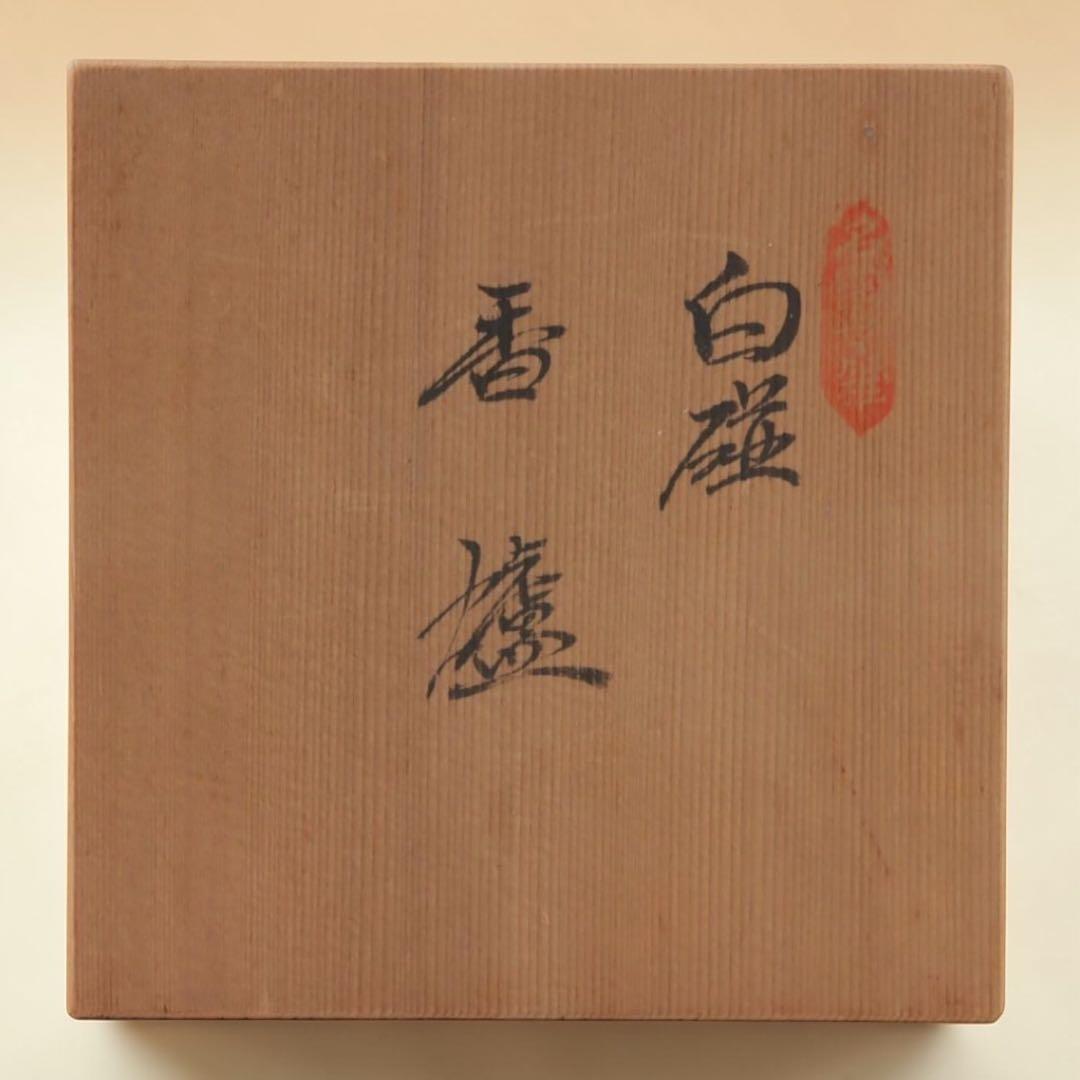 白磁
香爐